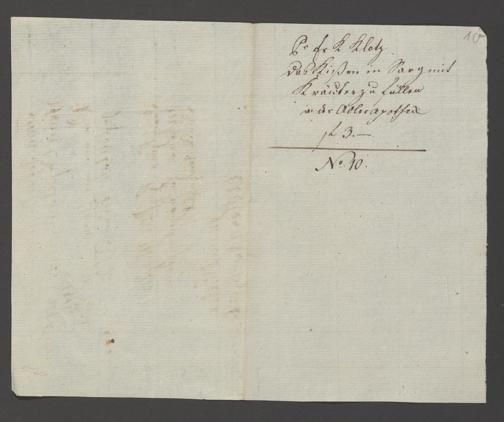 10
Fr K Klotz
das Kißen in Sarg mit
Kräuter zu füllen
der Adlerapothek
f 3.—
No. 10.